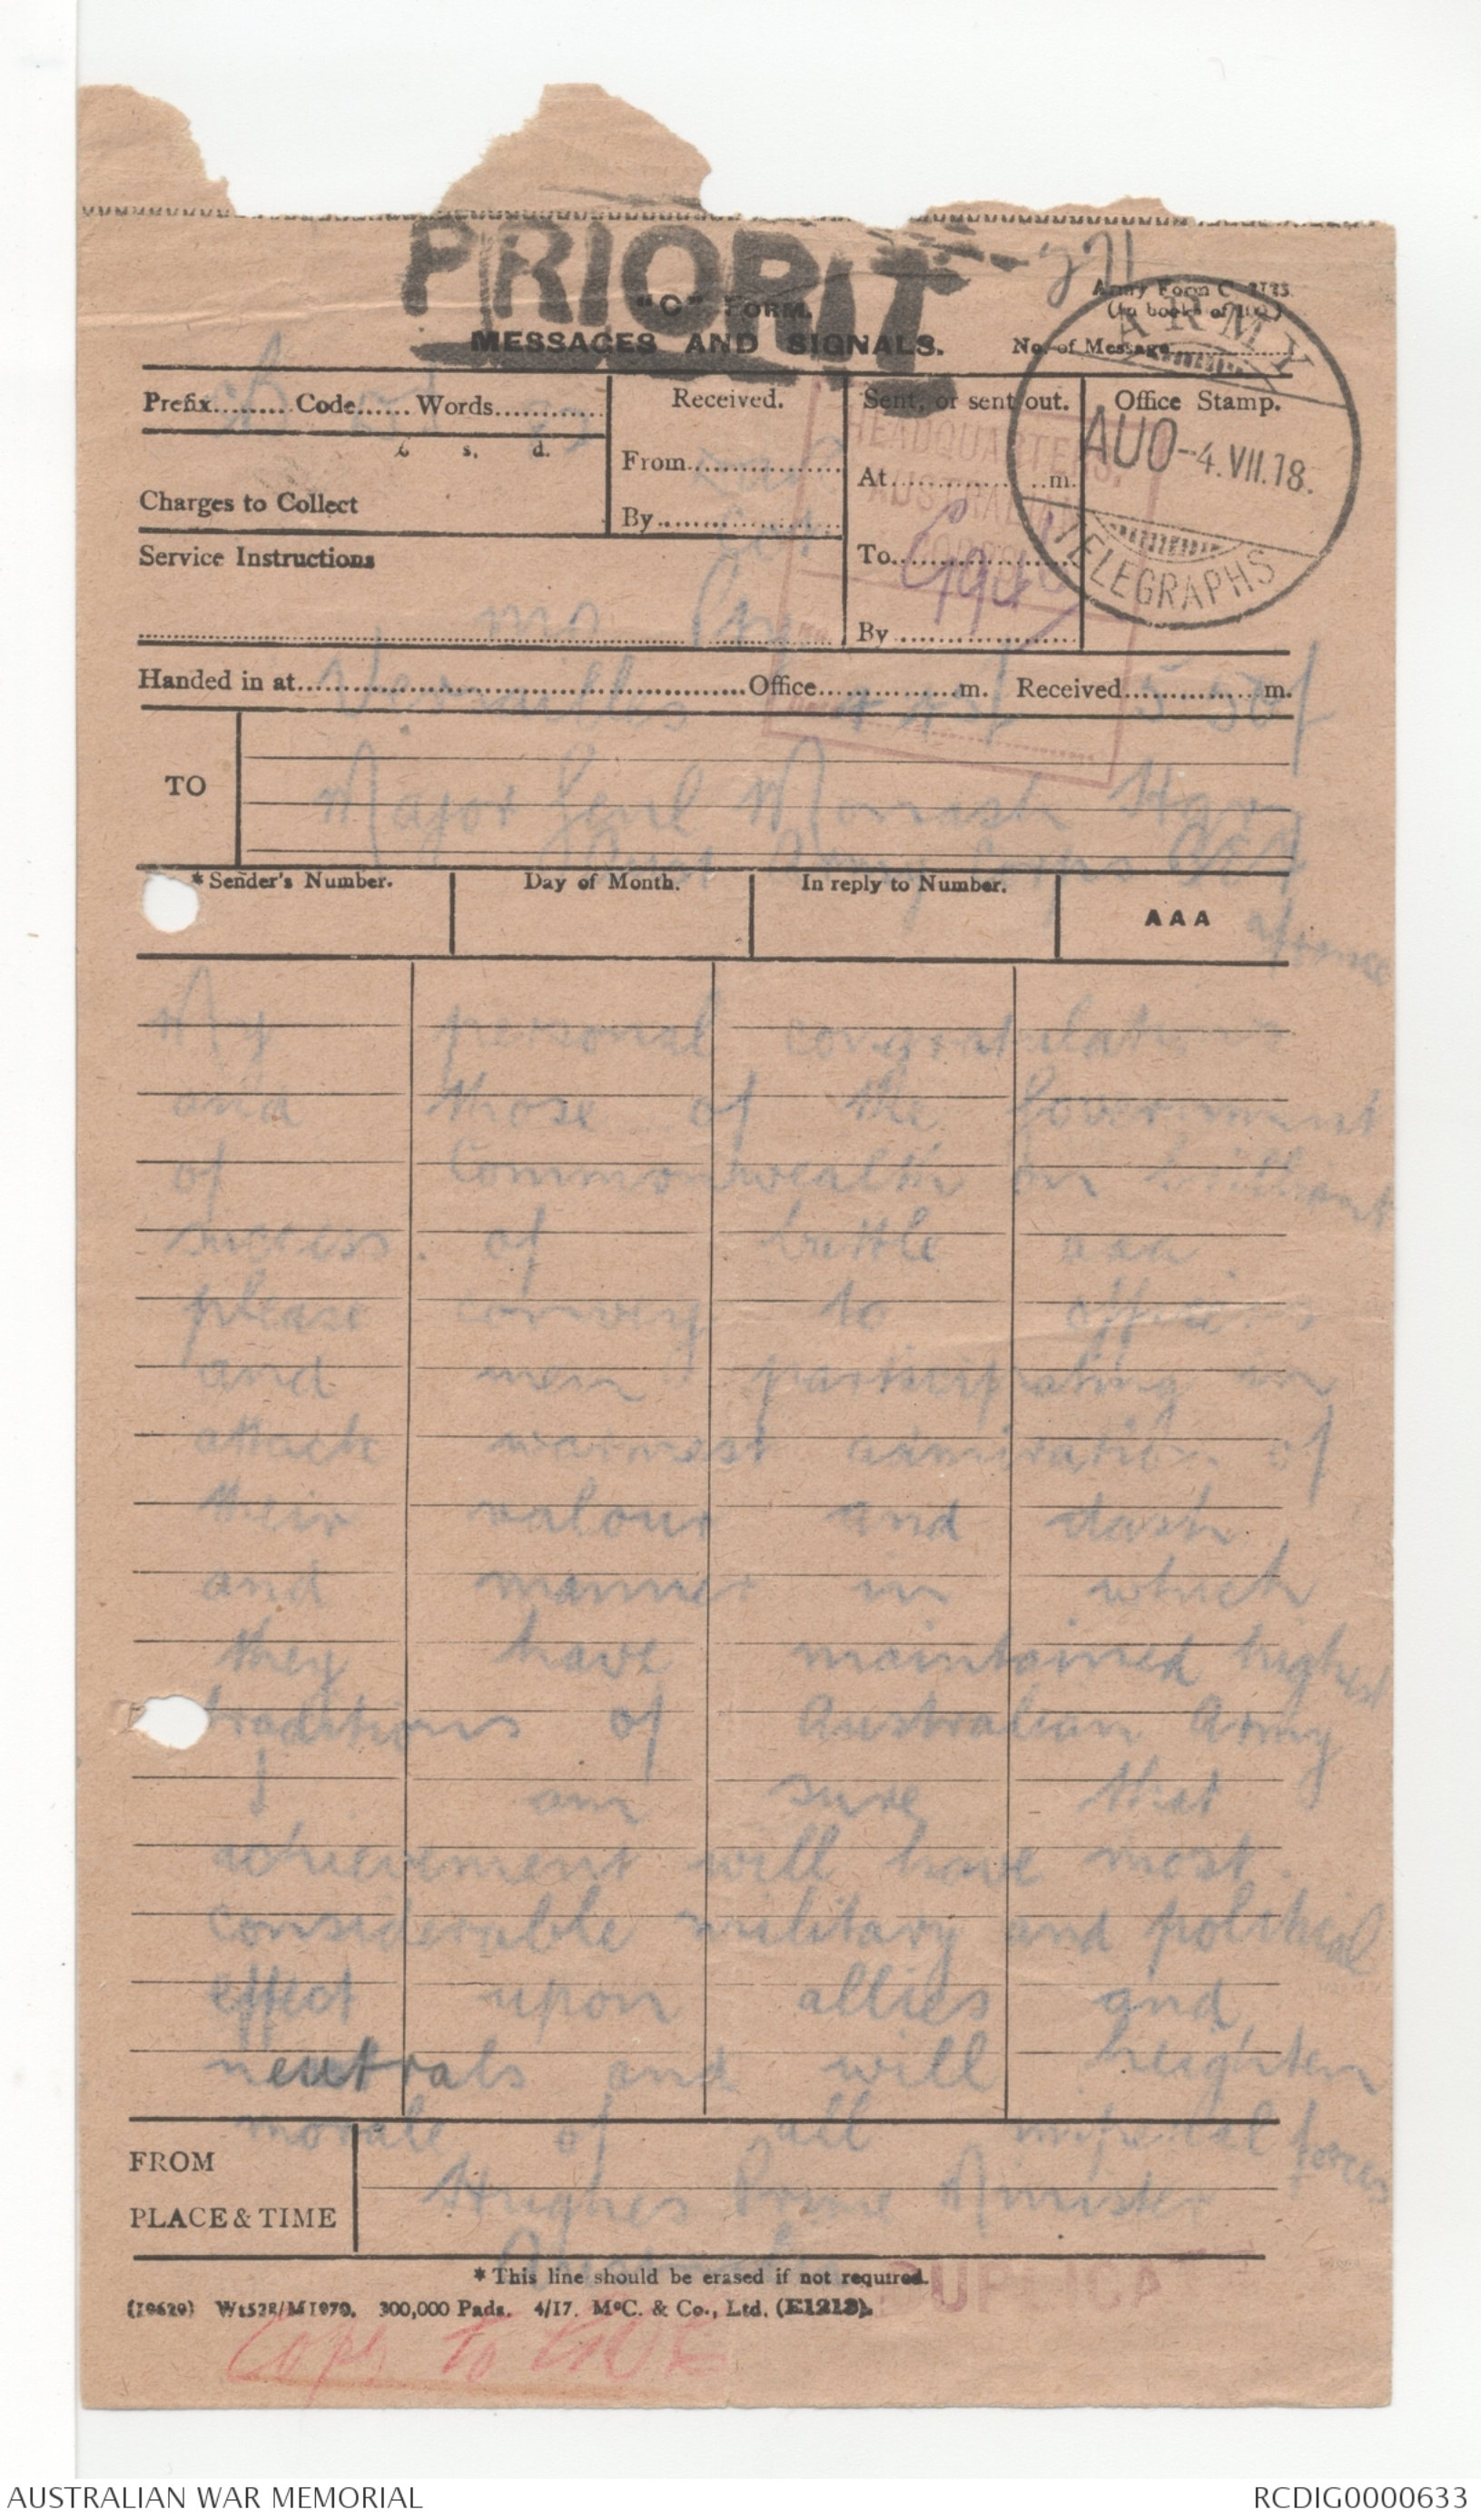 PRIORIT
"C" FORM.
Army Form C 2123
(In books of 100.)
MESSAGES AND SIGNALS.
No. of Message
Prefix Code Words
Received.
Sent, or sent out.
Office Stamp.
£ s. d.
Charges to Collect
From
By
At m.
To
By
HEADQUARTERS,
AUSTRALIAN
CORPS
ARMY
AUO-4.VII.18.
TELEGRAPHS
Service Instructions
Handed in at Versailles Office m. Received m.
TO Major Genl Monash
Army Corps
* Sender's Number. Day of Month. In reply to Number. AAA
My personal congratulations
and those of the Government
of Commonwealth on brilliant
success. of battle aaa
please convey to officers
and men participating in
attack warmest admiration of
their valour and dash
and manner in which
they have maintained highest
traditions of Australian Army
I am sure that
achievement will have most
considerable military and political
effect upon allies and
neutrals and will heighten
morale of all imperial forces
FROM
PLACE & TIME
Hughes Prime Minister
* This line should be erased if not required.
(19629) Wt528/M1970. 300,000 Pads. 4/17. McC. & Co., Ltd. (E1213).
Copy to
AUSTRALIAN WAR MEMORIAL
RCDIG0000633